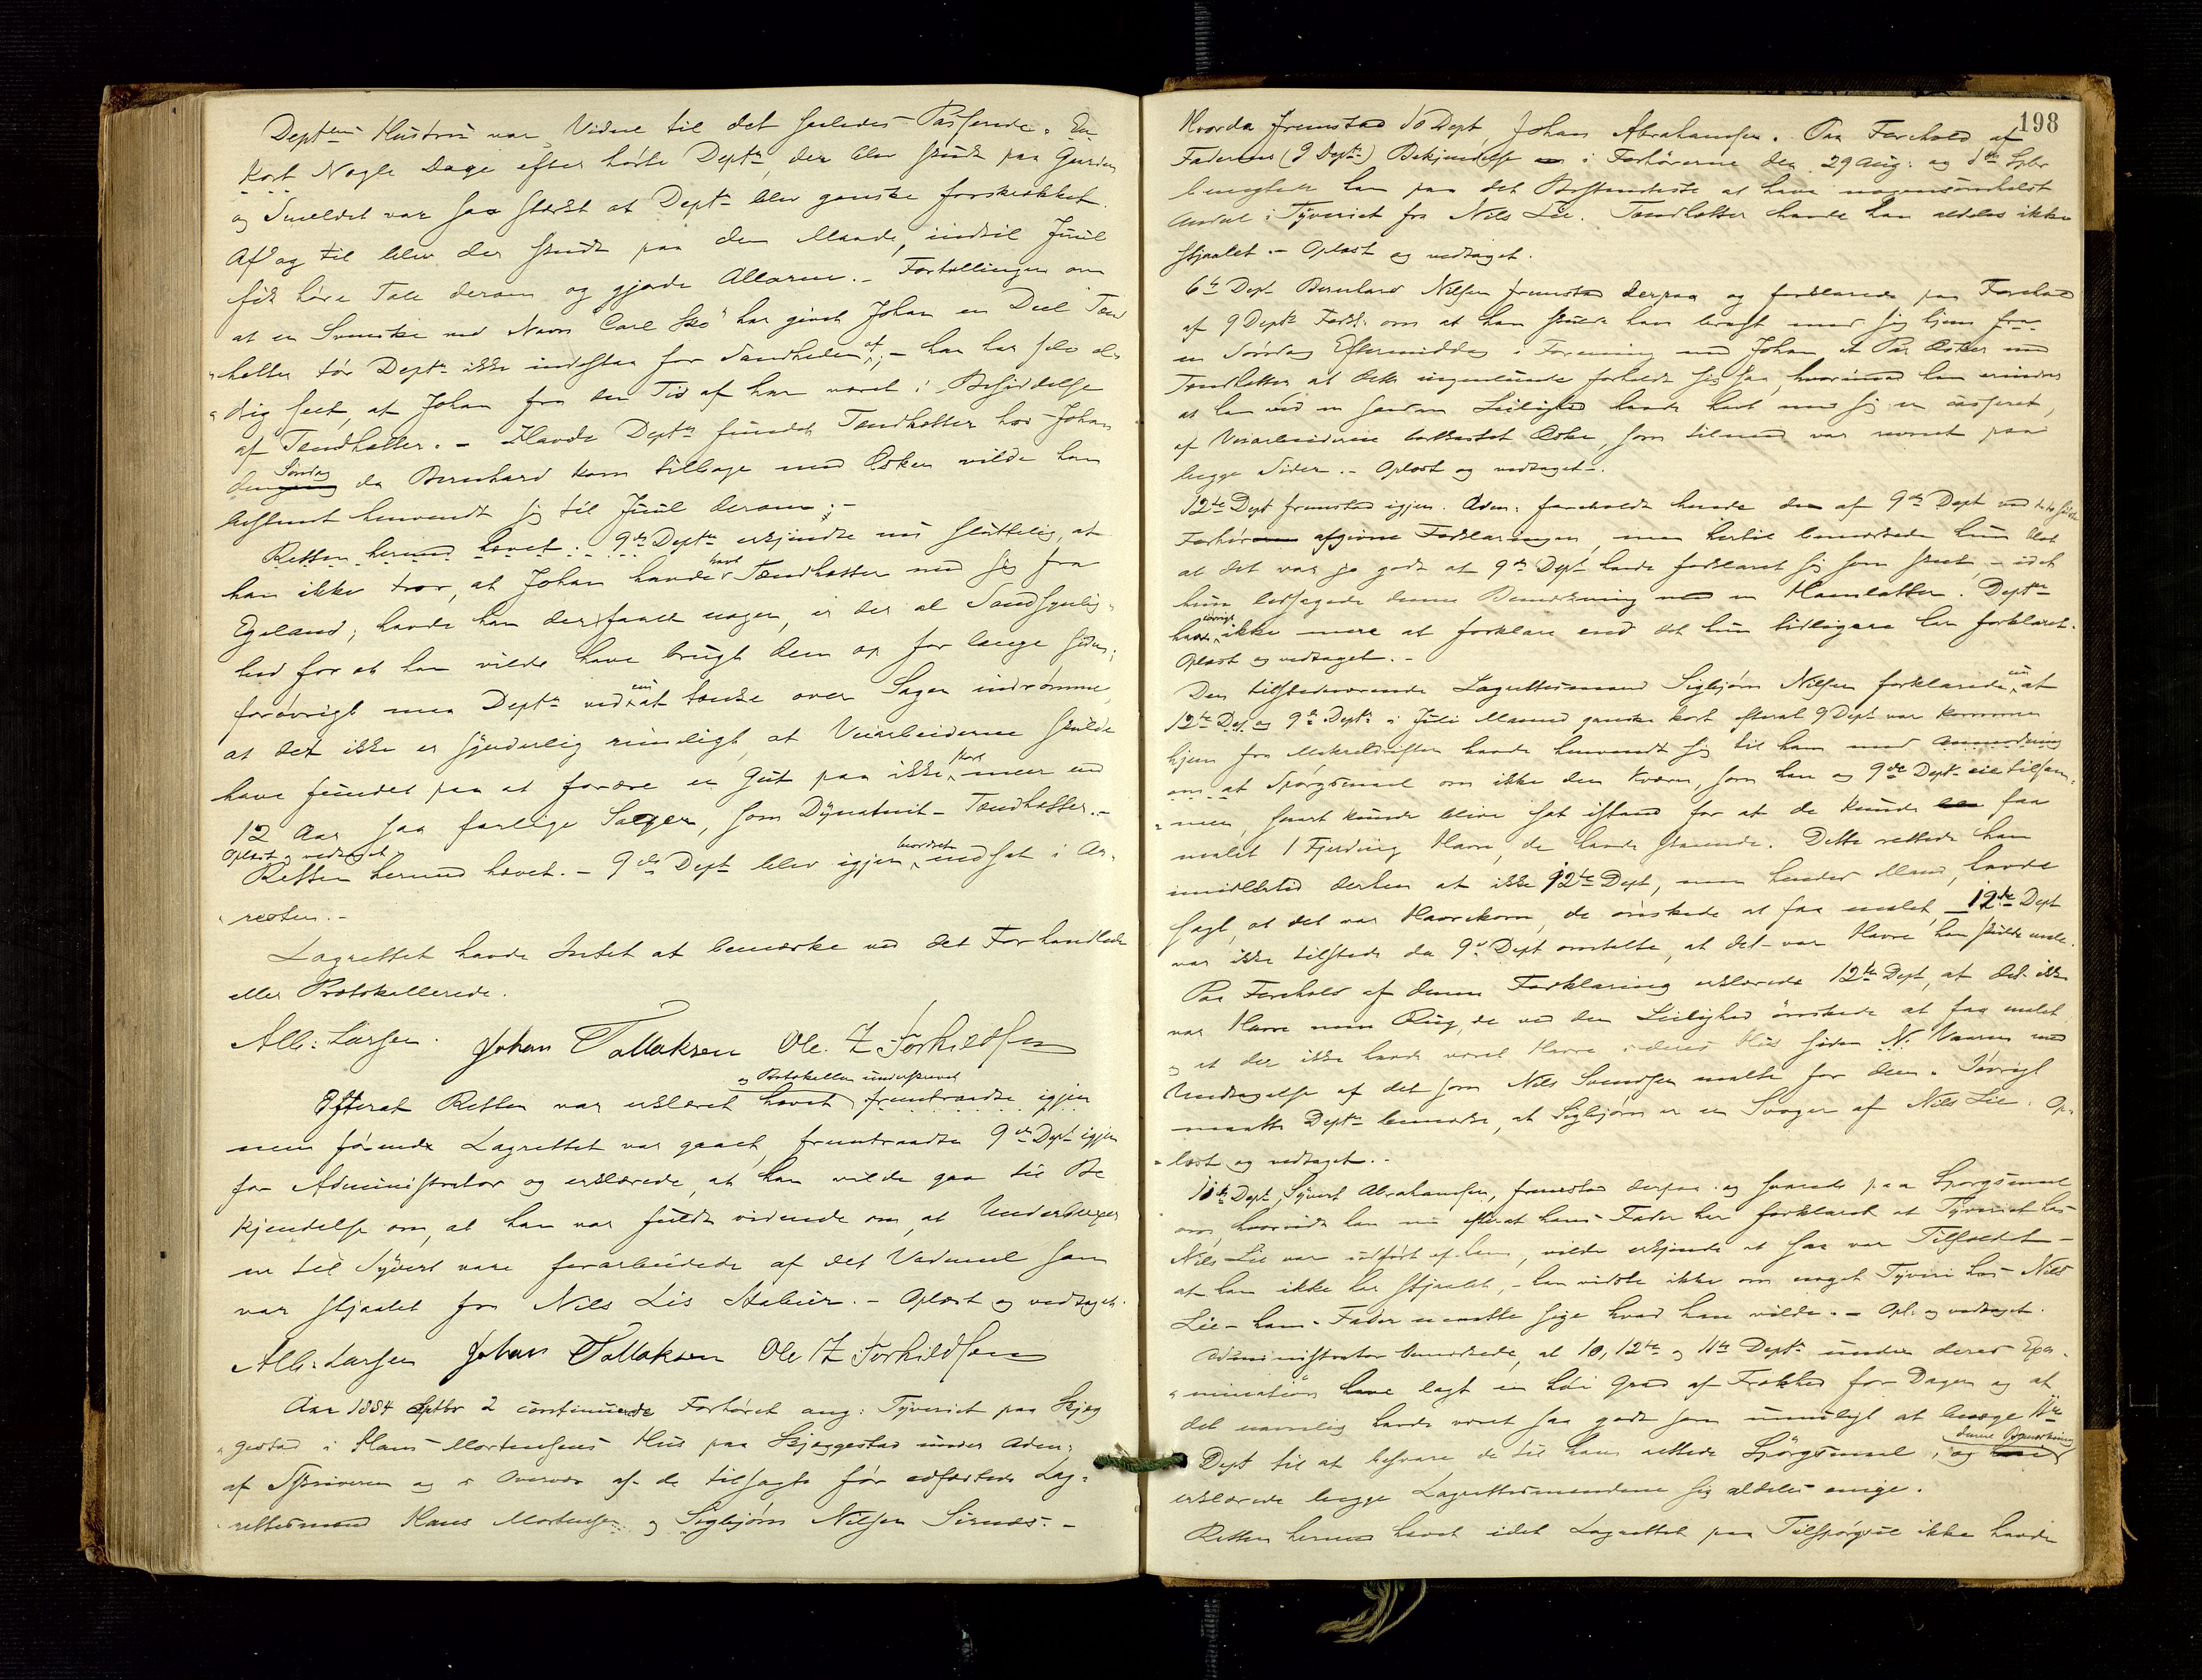 Deptens Hustru var Vidne til det saaledes Passerede. En
kort Nogle Dage efter hørte Deptn, der blev skudt paa Gaarden
og Smeldet var saa stærkt at Deptn blev ganske forskrækket.
Af og til blev der skudt paa den Maade, indtil Juul
fik høre Tale derom og gjorde Allarm. - Fortellingen om
at en Svenske ved Navn "Carl Sko" har givet Johan en Deel Tænd
"hetter tør Deptn ikke indestaa for Sandheden af; - han har selv al-
"drig seet, at Johan fra den Tid af har været i Besiddelse
af Tændhætter. - Havde Deptn fundet Tændhætter hos Johan
den gang Søndag da Bernhard kom tilbage med Æsken vilde han
bestemt henvendt sig til Juul derom; -
Retten hermed hævet. 9de Deptn erkjendte nu sluttelig, at
han ikke tror, at Johan havde havt Tændhætter med sig fra
Egeland; havde han der faaet nogen, er der al Sandsynlig-
hed for at han vilde have brugt dem op for længe siden;
forøvrigt maa Deptn ved nu at tænke over Sagen indrømme,
at det ikke er synderlig rimeligt, at Veiarbeiderne skulde
have fundet paa at forære en Gut paa ikke stort mere end
12 Aar saa farlige Sager, som Dynamit-Tændhætter. -
Oplæst og vedtaget -
Retten hermed hævet. - 9de Dept blev igjen indsat i Ar-
"resten. -
Lagrettet havde Intet at bemærke ved det Forhandlede
eller Protokollerede.
Alb: Larsen. Johan Tallaksen Ole Z Torkildsen
og Protokollen underskrevet
Efterat Retten var erklæret hævet fremtraadte igjen
men førend Lagrettet var gaaet, fremtraadte 9de Dept igjen
for Administrator og erklærede, at han vilde gaa til Be
kjendelse om, at han var fuldt vidende om, at Underbuxer
ne til Syvert vare forarbeidede af det Vadmel som
var stjaalet fra Nils Lis Stabur. - Oplæst og vedtaget.
Alb: Larsen Johan Tallaksen Ole Z Torkildsen
Aar 1884 Septbr 2 continuerede Forhøret ang: Tyveriet paa Skjeg
"gestad i Hans Mortensens Hus paa Skjeggestad under Adm:
af Skriveren og i Overvær af de tilsagte før edfæstede Lag-
"rettesmænd Hans Mortensen og Sigbjørn Nilsen Sirnes. -
198
Hvorda fremstod 10 Dept, Johan Abrahamsen. Paa Forehold af
Faderens (9 Deptn) Bekjendelse i Forhørerne den 29 Aug: og 1ste Sptbr
benegtede han paa det Bestemteste at have nogensomhelst
Andel i Tyveriet fra Nils Lie. Tændhætter havde han aldeles ikke
stjaalet. - Oplæst og vedtaget.
6te Dept Bernhard Nilsen fremstod derpaa og forklarede paa Forehold
af 9 Depts Forkl: om at han skulde have bragt med sig hjem fra
en Søndag Eftermiddag i Forening med Johan et Par Æsker med
Tændhetter at dette ingenlunde forholdt sig saa, hvorimod han erindrer
at han ved en saadan Leilighed havde havt med sig en casseret,
af Veiarbeiderne bortkastet Æske, som tilmed var revnet paa
begge Sider. - Oplæst og vedtaget. -
12te Dept fremstod igjen. Adm: foreholdt hende den af 9de Dept ved de to sidste
Forhør afgivne Forklaringer, men hertil bemærkede hun blot
at det var jo godt at 9de Dept havde forklaret sig som skeet, - idet
hun ledsagede denne Bemærkning med en Haanlatter. Deptn
havde iøvrigt ikke mere at forklare end det hun tidligere har forklaret.
Oplæst og vedtaget. -
Den tilstedeværende Lagrettesmand Sigbjørn Nilsen forklarede nu, at
12te Dep. og 9de Deptn i Juli Maaned ganske kort efterat 9 Dept var kommen
hjem fra Makreldriften havde henvendt sig til ham med Anmodning
om at Spørgsmaal om ikke den Kværn, som han og 9de Dept eie tilsam-
"men, snart kunde blive sat istand for at de kunde faa
malet 1 Fjerding Havre, de havde staaende. Dette rettede han
imidlertid derhen at ikke 12te Dept, men hendes Mand, havde
sagt, at det var Havrekorn, de ønskede at faa malet, - 12te Dept
var ikke tilstede da 9de Dept omtalte, at det var Havre han skulde male.
Paa Forehold af denne Forklaring erklærede 12te Dept, at det ikke
var Havre men Rug, de ved den Leilighed ønskede at faa malet
og at der ikke havde været Havre i deres Hus siden Vaaren med
Undtagelse af det som Nils Svendsen malte for dem. Iøvrigt
maatte Deptn bemærke, at Sigbjørn er en Svoger af Nils Lie. Op-
"læst og vedtaget. -
11te Dept, Syvert Abrahamsen, fremstod derpaa og svarede paa Spørgsmaal
om, hvorvidt han nu efterat hans Fader har forklaret at Tyveriet hos
Nils Lie var udført af ham, vilde erkjende at saa var Tilfældet -
at han ikke har stjaalet, - han vidste ikke om noget Tyveri hos Nils
Lie - hans Fader maatte sige hvad han vilde. - Opl: og vedtaget.
Administrator bemærkede, at 10, 12te og 11te Deptn under deres Exa-
"mination have lagt en høi Grad af Frækhed for Dagen og at
det navnlig havde været saa godt som umuligt at bevæge 11te
Dept til at besvare de til ham rettede Spørgsmaal, i denne Bemærkning
erklærede begge Lagrettesmændene sig aldeles enige.
Retten hermed hævet idet Lagrettet paa Tilspørgsel ikke havde